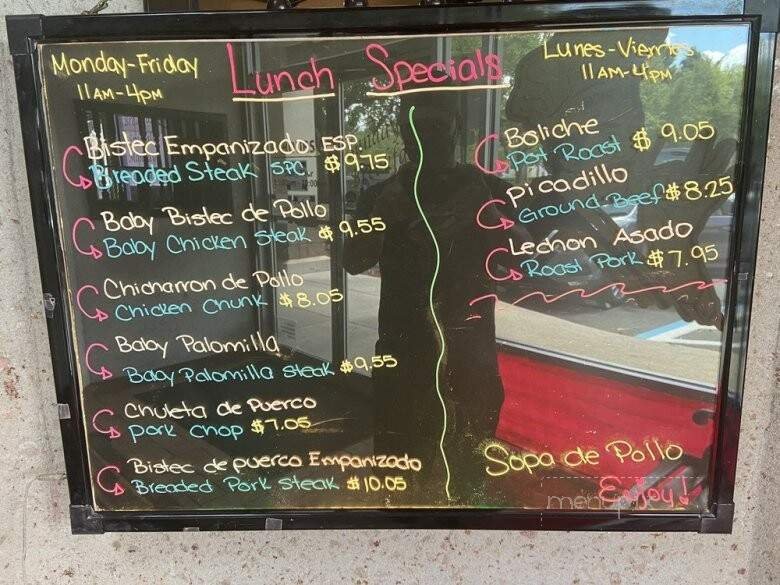 Monday-Friday
11AM-4PM
Lunch Specials
Lunes-Viernes
11AM-4PM
Bistec Empanizado ESP.
Breaded Steak SPC. $9.75
Baby Bistec de Pollo
Baby Chicken Steak $9.55
Chicharron de Pollo
Chicken Chunk $8.05
Baby Palomilla
Baby Palomilla Steak $9.55
Chuleta de Puerco
Pork Chop $7.05
Bistec de puerco Empanizado
Breaded Pork Steak $10.05
Boliche
Pot Roast $9.05
Picadillo
Ground Beef $8.25
Lechon Asado
Roast Pork $7.95
Sopa de Pollo
Enjoy!